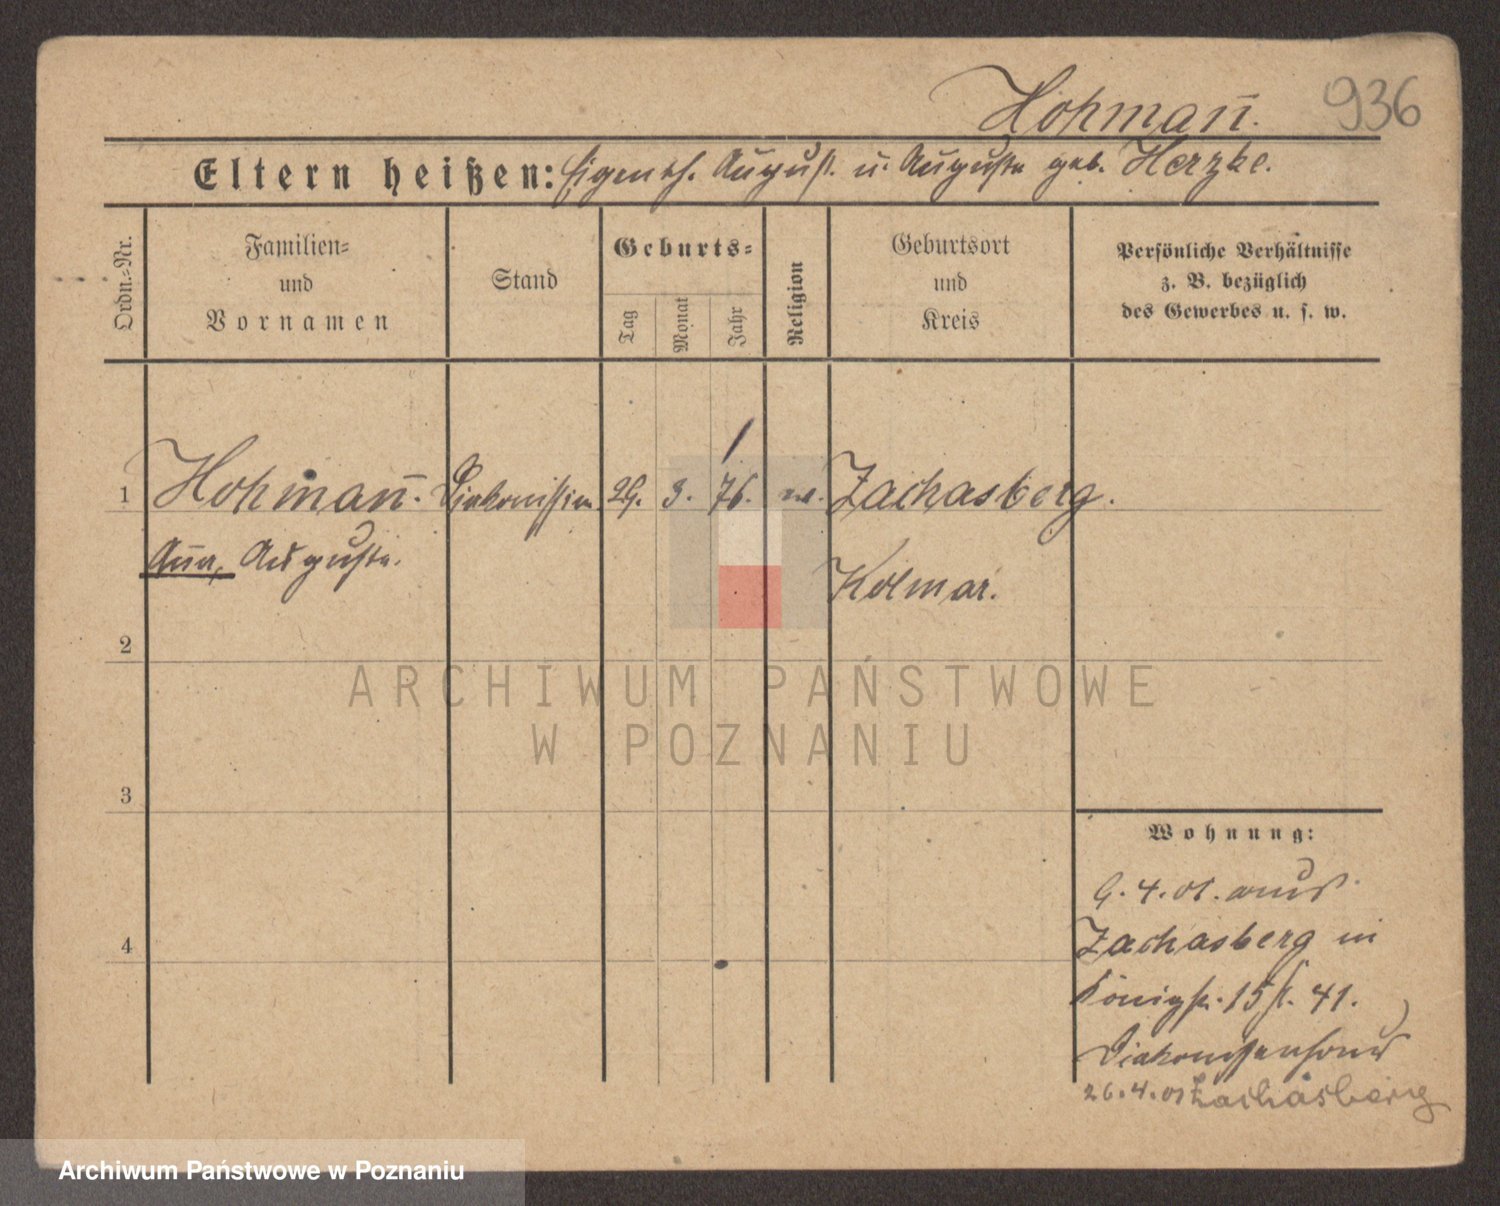 Hohmann.
936
Eltern heißen: Eigenth. August u. Auguste geb. Herzke.
Ordn.-Nr.
Familien-
und
Vornamen
Stand
Geburts-
Tag
Monat
Jahr
Religion
Geburtsort
und
Kreis
Persönliche Verhältnisse
z. B. bezüglich
des Gewerbes u. s. w.
1 Hohmann. Diakonissin 29. 3. 76. Zachasberg.
Anna, Auguste.
Kolmar.
2
3
4
Wohnung:
9.4.01. aus
Zachasberg in
Königstr. 15 41.
Diakonissenhaus
26.4.01 Zachasberg
ARCHIWUM PAŃSTWOWE
W POZNANIU
Archiwum Państwowe w Poznaniu